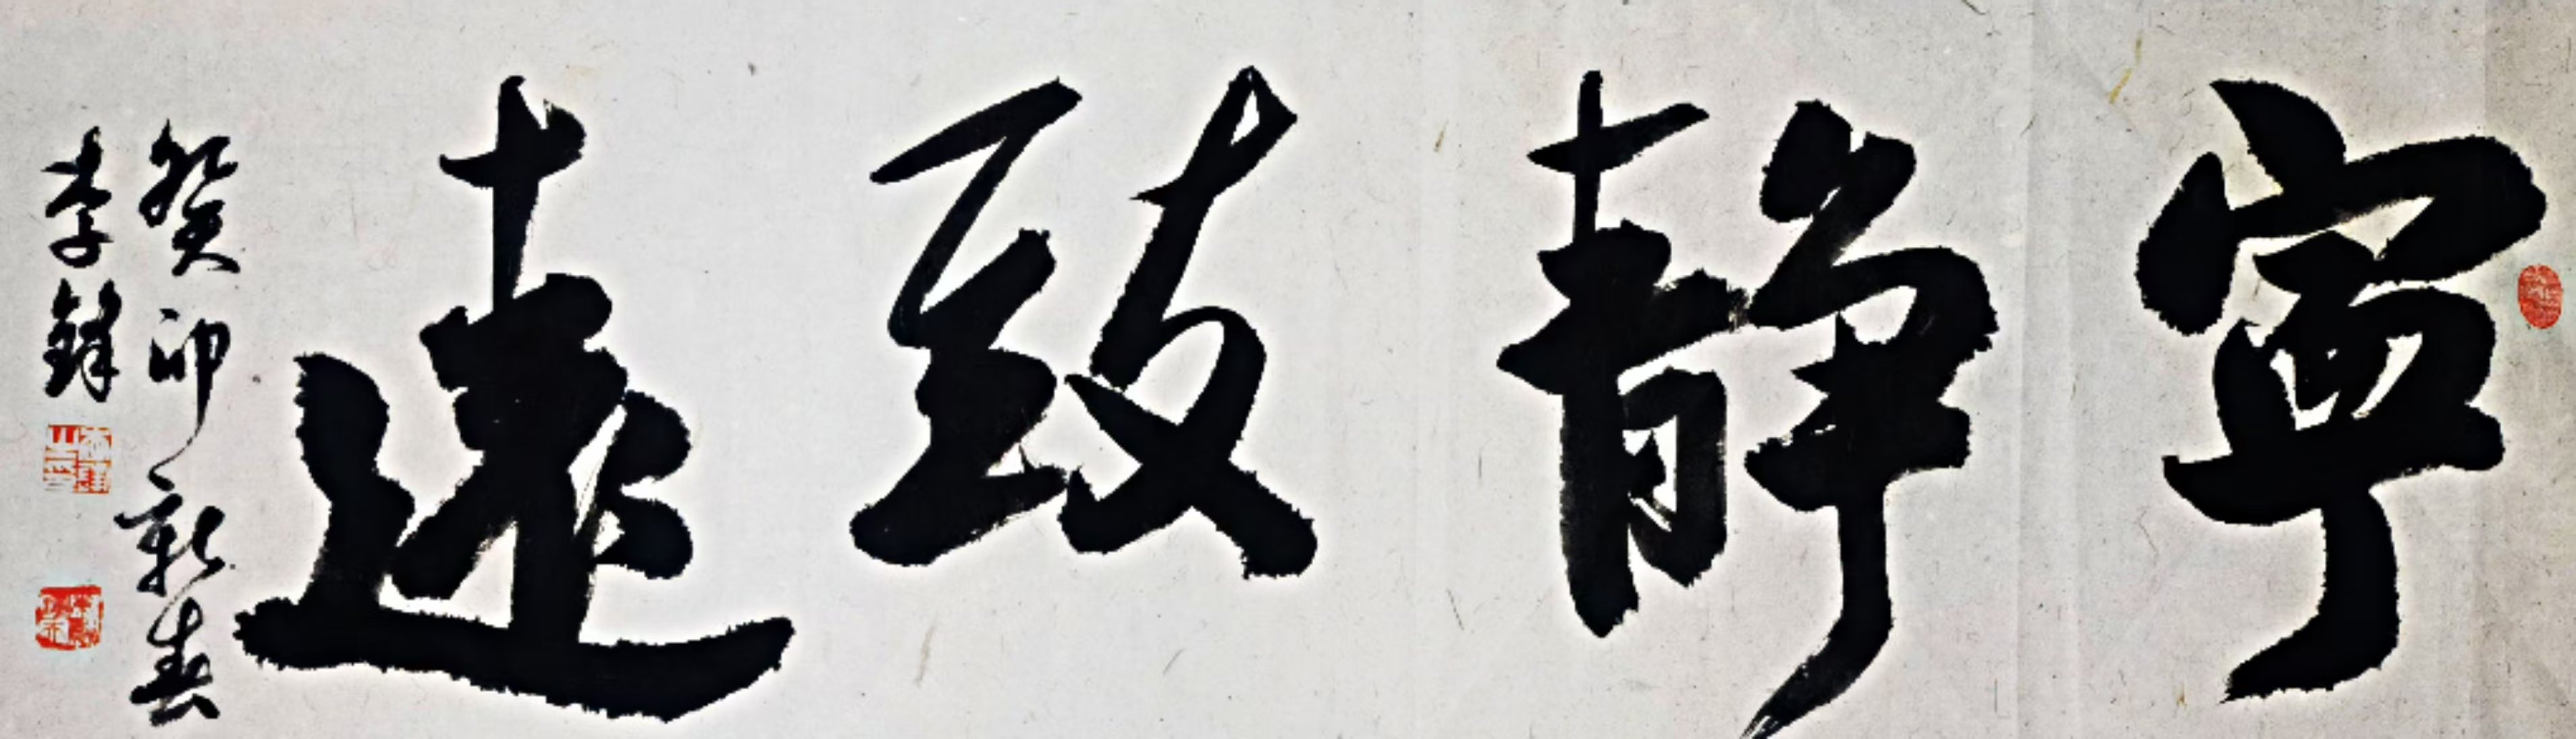 寧靜致遠
癸卯新春
李鋒